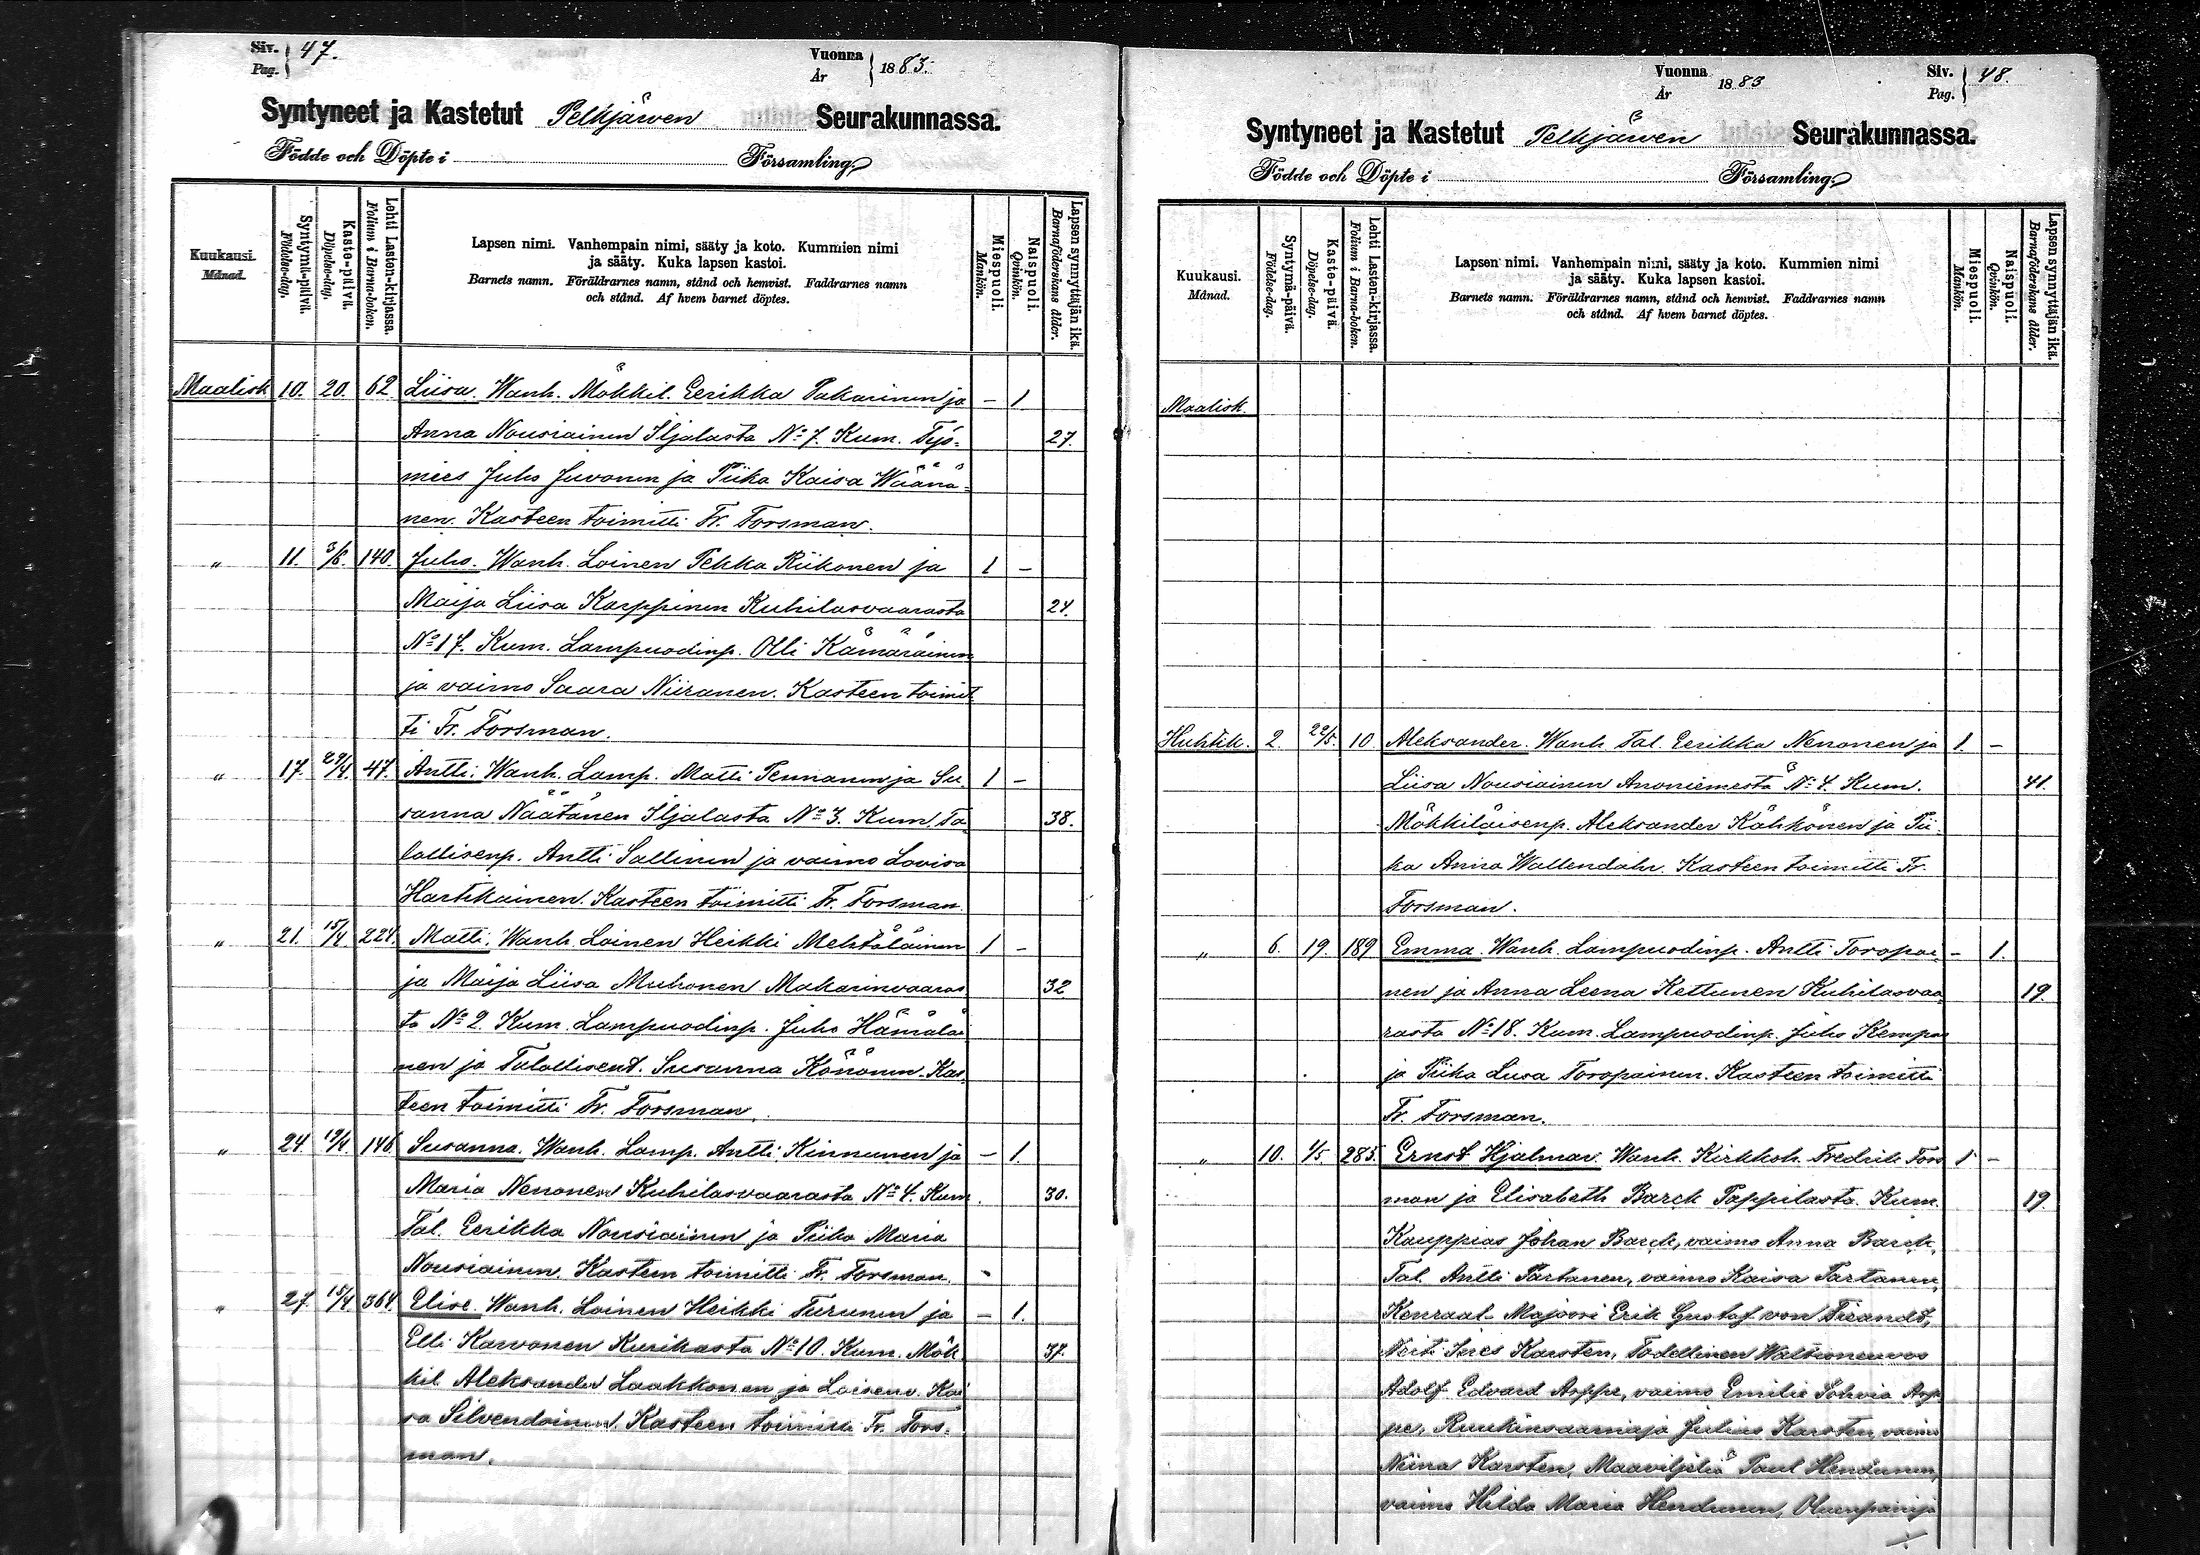 Siv. 47.
Pag.
Vuonna 1883.
År
Syntyneet ja Kastetut Pelkjärven Seurakunnassa.
Födde och Döpte i Församling
Kuukausi. Månad.
Syntymä-päivä. Födelse-dag.
Kaste-päivä. Döpelse-dag.
Lehti Lasten-kirjassa. Folium i Barna-boken.
Lapsen nimi. Vanhempain nimi, sääty ja koto. Kummien nimi
ja sääty. Kuka lapsen kastoi.
Barnets namn. Föräldrarnes namn, stånd och hemvist. Faddrarnes namn
och stånd. Af hvem barnet döptes.
Miespuoli. Mankön.
Naispuoli. Qvinkön.
Lapsen synnyttäjän ikä. Barnaföderskans ålder.
Maalisk. 10. 20. 62. Liisa. Wanh. Mökkil. Eerikka Pakarinen ja - 1
Anna Nousiainen Iljalasta No 7. Kum. Työ- 27.
mies Juho Juvonen ja Piika Kaisa Wäänä-
nen. Kasteen toimitti Fr. Forsman.
" 11. 3/6. 140. Juho. Wanh. Loinen Pekka Riikonen ja 1 -
Maija Liisa Karppinen Kuhilasvaarasta 24.
No 17. Kum. Lampuodinp. Olli Kämäräinen
ja vaimo Saara Niiranen. Kasteen toimit
ti Fr. Forsman.
" 17. 29/4. 47. Antti. Wanh. Lamp. Matti Pennanen ja Su- 1 -
sanna Näätänen Iljalasta No 3. Kum. Ta- 38.
lollisenp. Antti Sallinen ja vaimo Lovisa
Hartikainen. Kasteen toimitti Fr. Forsman.
" 21. 15/4 224. Matti. Wanh. Loinen Heikki Mehtäläinen 1 -
ja Maija Liisa Muhonen Makarinvaaras 32
ta No 2. Kum. Lampuodinp. Juho Hämäläi
nen ja Talollisent. Susanna Könönen. Kas-
teen toimitti Fr. Forsman.
" 24. 19/4 146. Susanna. Wanh. Lamp. Antti Kinnunen ja - 1.
Maria Nenonen Kuhilasvaarasta No 4. Kum. 30.
Tal. Eerikka Nousiainen ja Piika Maria
Nousiainen. Kasteen toimitti Fr. Forsman.
" 27. 15/4 364. Elise. Wanh. Loinen Heikki Turunen ja - 1.
Elli Karvonen Kurikasta No 10. Kum. Mök- 37.
kil. Aleksander Laakkonen ja Loisenv. Kai
sa Silvendoinen. Kasteen toimitti Fr. Fors-
man.
Vuonna 1883
År
Siv. 48.
Pag.
Syntyneet ja Kastetut Pelkjärven Seurakunnassa.
Födde och Döpte i Församling
Kuukausi. Månad.
Syntymä-päivä. Födelse-dag.
Kaste-päivä. Döpelse-dag.
Lehti Lasten-kirjassa. Folium i Barna-boken.
Lapsen nimi. Vanhempain nimi, sääty ja koto. Kummien nimi
ja sääty. Kuka lapsen kastoi.
Barnets namn. Föräldrarnes namn, stånd och hemvist. Faddrarnes namn
och stånd. Af hvem barnet döptes.
Miespuoli. Mankön.
Naispuoli. Qvinkön.
Lapsen synnyttäjän ikä. Barnaföderskans ålder.
Maalisk.
Huhtik. 2. 22/5. 10 Aleksander. Wanh. Tal. Eerikka Nenonen ja 1. -
Liisa Nousiainen Anoniemestä No 4. Kum. 41.
Mökkiläisenp. Aleksander Kähkönen ja Pii
ka Anna Wallendahr. Kasteen toimitti Fr.
Forsman.
" 6. 19. 189 Emma. Wanh. Lampuodinp. Antti Toropai- - 1.
nen ja Anna Leena Kettunen Kuhilasvaa- 19.
rasta No 18. Kum. Lampuodinp. Juho
ja Piika Liisa Toropainen. Kasteen toimitti
Fr. Forsman.
" 10. 1/5 285. Ernst Hjalmar. Wanh. Kirkkoh. Fredrik Fors 1 -
man ja Elisabeth Barck Pappilasta. Kum. 19.
Kauppias Johan Barck, vaimo Anna Barck,
Tal. Antti Partanen, vaimo Kaisa Partanen,
Kenraal-Majoori Erik Gustaf von
Neiti Ines Karsten, Todellinen Waltioneuvos
Adolf Edvard Arppe, vaimo Emilie Sohvia Arp
pe, Ruukinsaarnaaja Julius Karsten, vaimo
Niina Karsten, Maaviljeliä Paul Hendunen,
vaimo Hilda Maria Hendunen, Oluenpanija